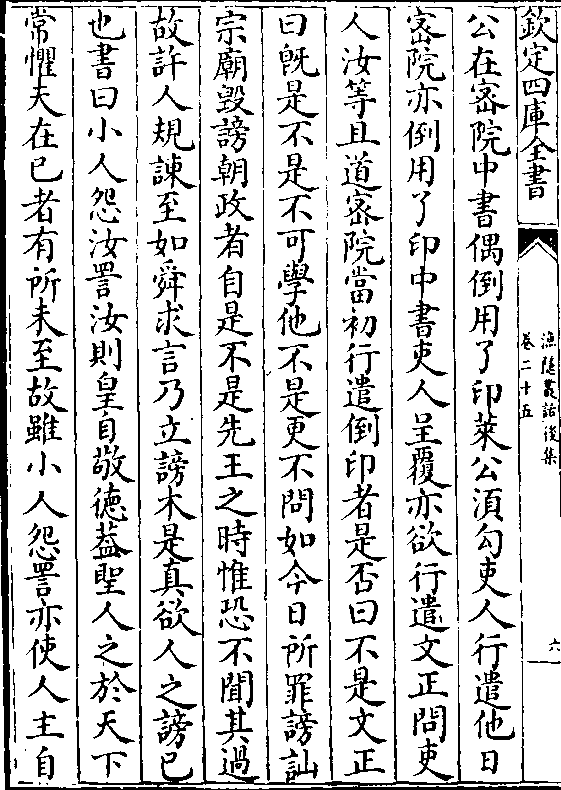 欽定四庫全書
漁隱叢話後集
卷二十五
六
公在宻院中書偶倒用了印萊公湏勾吏人行遣他日
宻院亦倒用了印中書吏人呈覆亦欲行遣文正問吏
人汝等且道宻院當初行遣倒印者是否曰不是文正
曰旣是不是不可學他不是更不問如今日所罪謗訕
宗廟毀謗朝政者自是不是先王之時惟恐不聞其過
故許人規諌至如舜求言乃立謗木是真欲人之謗已
也書曰小人怨汝詈汝則皇自敬徳葢聖人之於天下
常懼夫在已者有所未至故雖小人怨詈亦使人主自